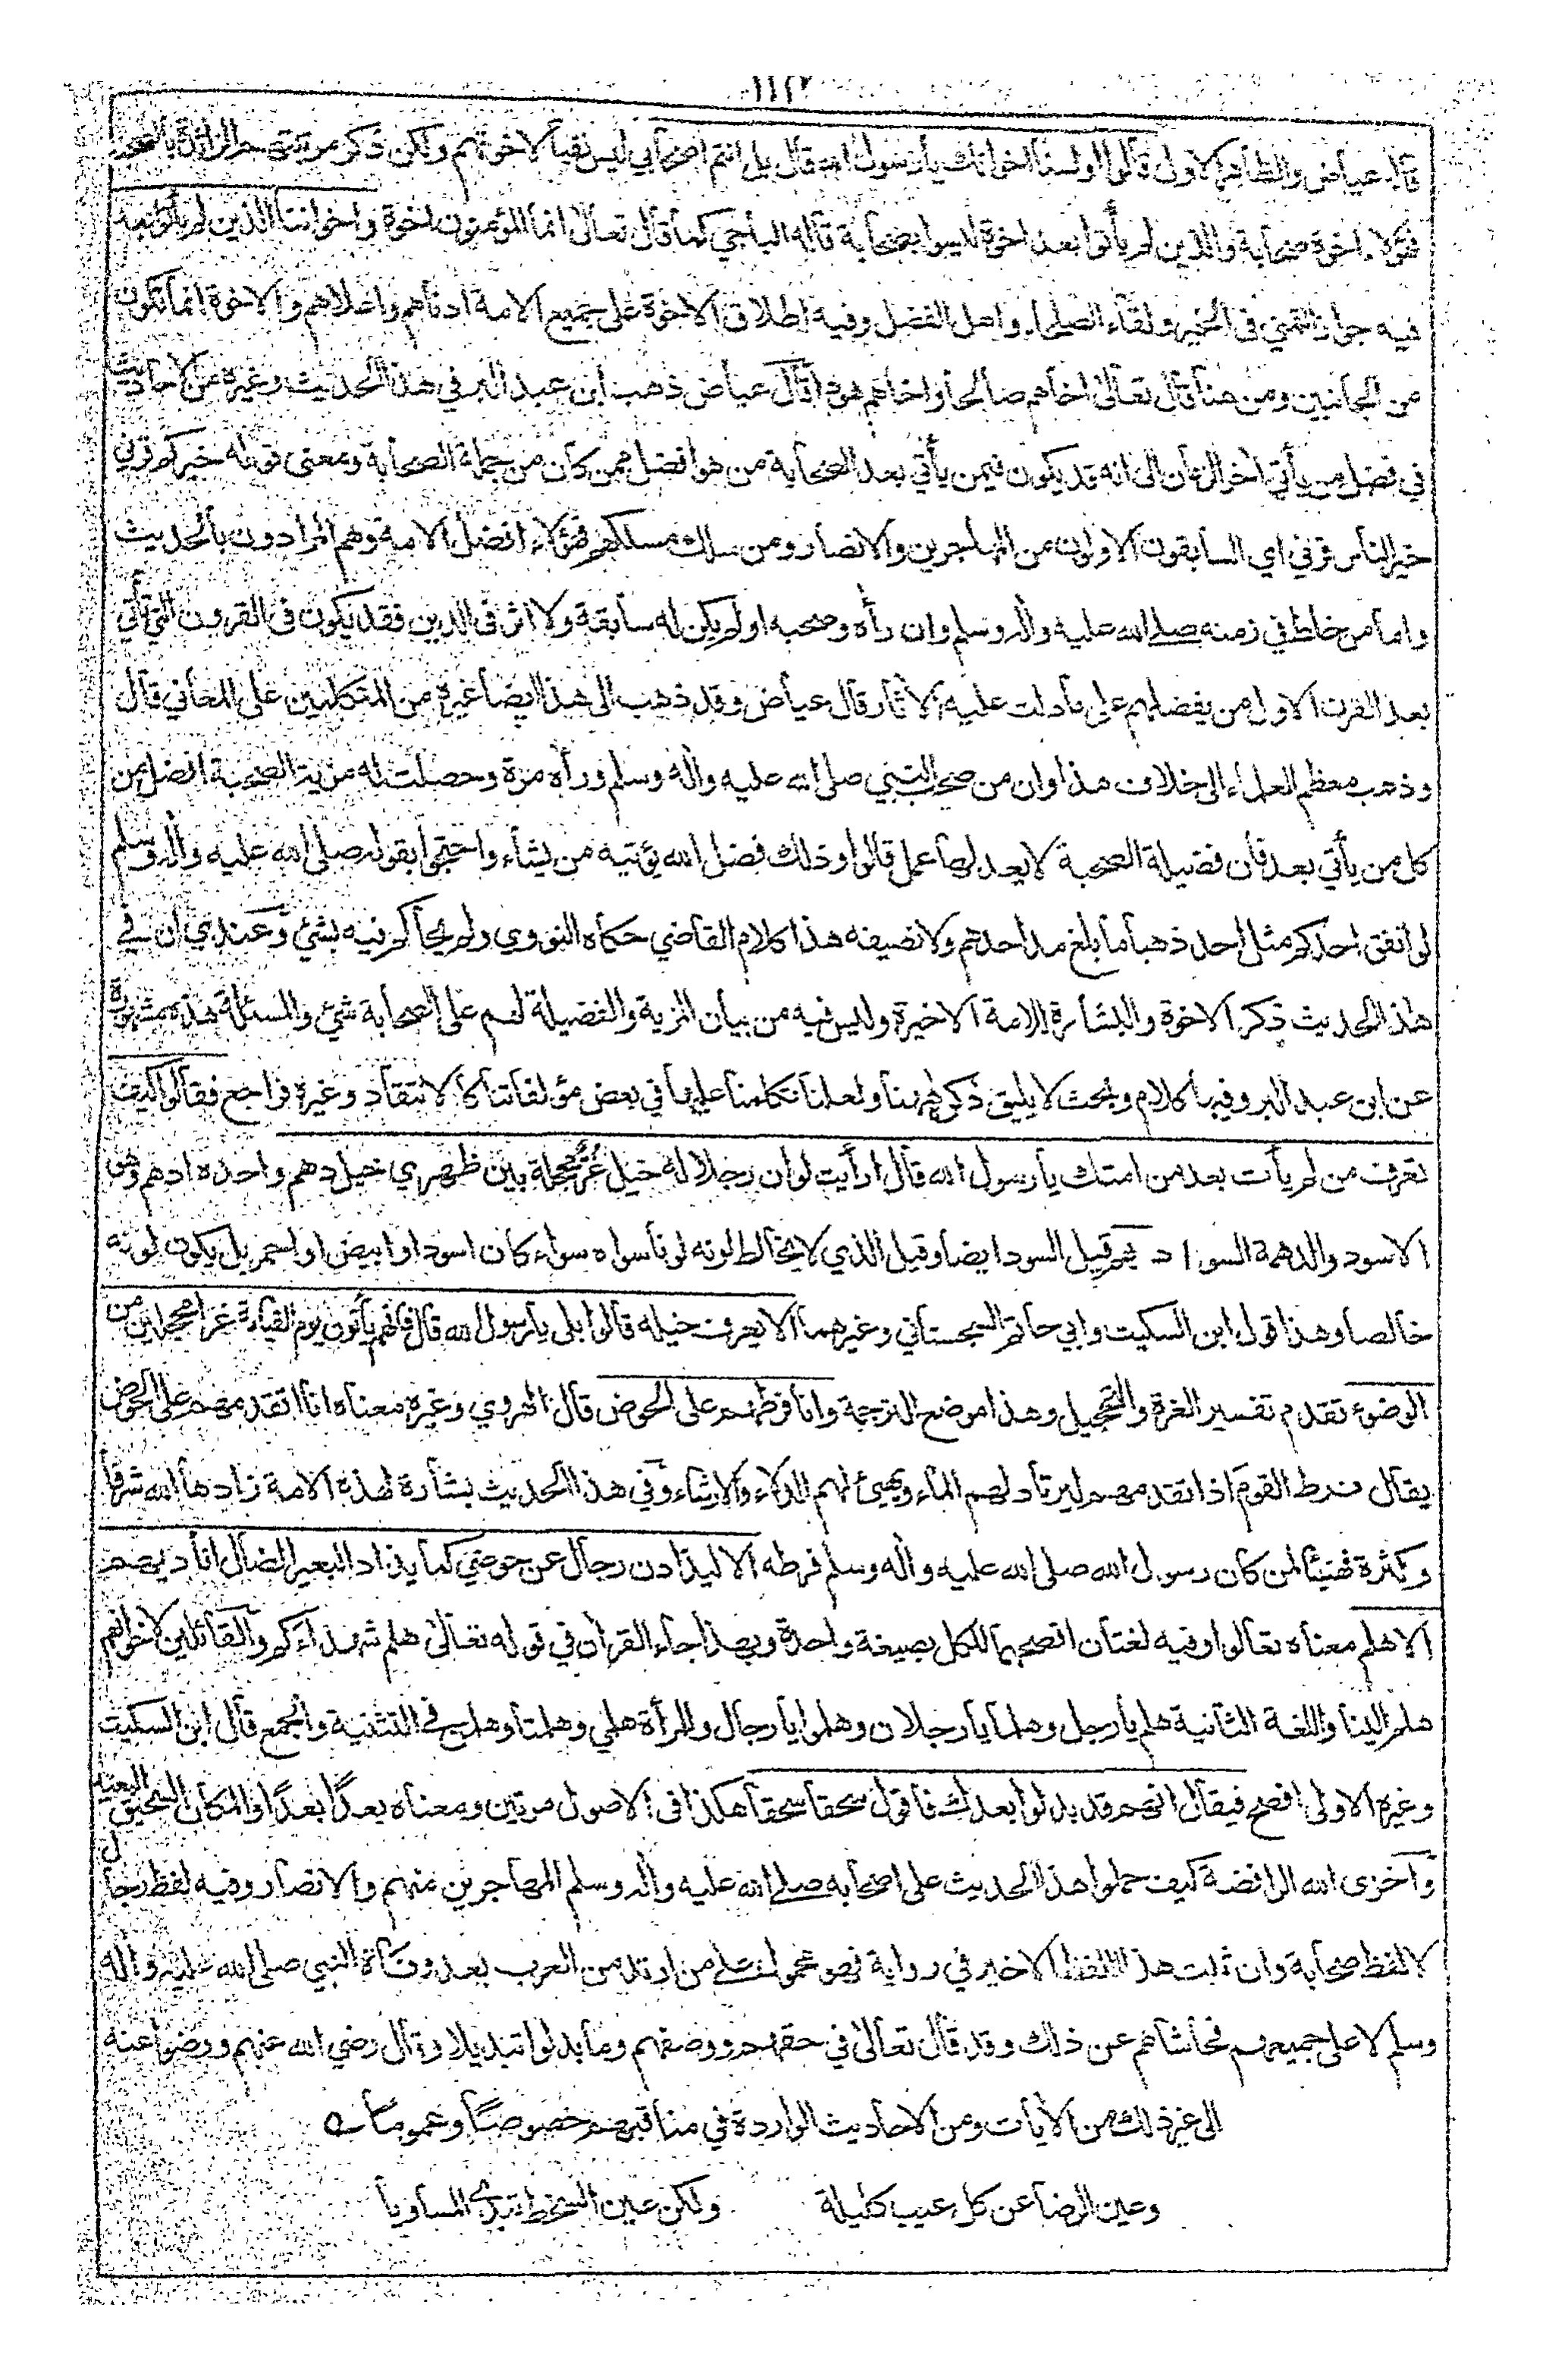 ١١٢٢
قاله عياض والظاهر الاولى قالوا اولسنا اخوانك يا رسول الله قال بل انتم اصحابي ليس نفيا لاخوتهم ولكن ذكر مرتبتهم الزائدة بالصحبة
فهؤلاء اخوة صحابة والذين لم يأتوا بعد اخوة ليسوا بصحابة قاله الباجي كما قال تعالى انما المؤمنون اخوة واخواننا الذين لم يأتوا بعد
فيه جواز التمني في الخير ولقاء الصلحاء واهل الفضل وفيه اطلاق الاخوة على جميع الامة ادناهم واعلاهم والاخوة انما تكون
من الجانبين ومن هنا قال تعالى اخاهم صالحا واخاهم هودا قال عياض ذهب ابن عبد البر في هذا الحديث وغيره من الاحاديث
في فضل من يأتي اخر الزمان الى انه قد يكون فيمن يأتي بعد الصحابة من هو افضل ممن كان من جملة الصحابة ومعنى قوله خيركم قرني
خير الناس قرني اي السابقون الاولون من المهاجرين والانصار ومن سلك مسلكهم فهؤلاء افضل الامة وهم المرادون بالحديث
واما من خلط في زمنه صلى الله عليه واله وسلم وان رأه وصحبه او لم يكن له سابقة ولا اثر في الدين فقد يكون في القرون التي تأتي
بعد القرن الاول من يفضلهم على ما دلت عليه الأثار قال عياض وقد ذهب الى هذا ايضا غيره من المتكلمين على المعاني قال
وذهب معظم العلماء الى خلاف هذا وان من صحب النبي صلى الله عليه واله وسلم ورأه مرة وحصلت له مزية الصحبة افضل من
كل من يأتي بعد فان فضيلة الصحبة لا يعدلها عمل قالوا وذلك فضل الله يؤتيه من يشاء واحتجوا بقوله صلى الله عليه واله وسلم
لو انفق احدكم مثل احد ذهبا ما بلغ مد احدهم ولا نصيفه هذا كلام القاضي حكاه النووي ولم يحاكم فيه بشئ وعندي ان في
هذا الحديث ذكر الاخوة والبشارة للامة الاخيرة وليس فيه من بيان المزية والفضيلة لهم على الصحابة شئ والمسئلة هذه مشهورة
عن ابن عبد البر وفيها كلام وبحث لا يليق ذكرهما هنا ولعلنا تكلمنا عليها في بعض مؤلفاتنا كالانتقاد وغيره فراجع فقالوا كيف
تعرف من لم يأت بعد من امتك يا رسول الله قال ارأيت لو ان رجلا له خيل غر محجلة بين ظهري خيل دهم واحده ادهم وهو
الاسود والدهمة السواد بهم قيل السود ايضا وقيل الذي لا يخالط لونه لونا سواه سواء كان اسود او ابيض او احمر بل يكون لونه
خالصا وهذا قول ابن السكيت وابي حاتم السجستاني وغيرهما الا يعرف خيله قالوا بلى يا رسول الله قال فانهم يأتون يوم القيامة غرا محجلين من
الوضوء تقدم تفسير الغرة والتحجيل وهذا موضع الترجمة وانا فرطهم على الحوض قال الهروي وغيره معناه انا اتقدمهم على الحوض
يقال فرط القوم اذا تقدمهم ليرتاد لهم الماء ويهيئ لهم الدلاء والارشاء وفي هذا الحديث بشارة لهذه الامة زادها الله شرفا
وكثرة فهنيئا لمن كان رسول الله صلى الله عليه واله وسلم فرطه الا ليذادن رجال عن حوضي كما يذاد البعير الضال اناديهم
الا هلم معناه تعالوا وفيه لغتان افصحهما للكل بصيغة واحدة وبهذا جاء القران في قوله تعالى هلم شهداءكم والقائلين لاخوانهم
هلم الينا واللغة الثانية هلم يا رجل وهلما يا رجلان وهلموا يا رجال وللمرأة هلمي وهلمتا وهلمن في التثنية والجمع قال ابن السكيت
وغيره الاولى افصح فيقال انهم قد بدلوا بعدك فاقول سحقا سحقا هكذا في الاصول مرتين ومعناه بعدًا بعدًا والمكان السحيق البعيد
واخزى الله الرافضة كيف حملوا هذا الحديث على اصحابه صلى الله عليه واله وسلم المهاجرين منهم والانصار وفيه لفظ رجال
لا لفظ صحابة وان ثبت هذا اللفظ الاخير في رواية فهو محمول على من ارتد من العرب بعد وفاة النبي صلى الله عليه واله
وسلم لا على جميعهم فحاشاهم عن ذلك وقد قال تعالى في حقهم ووصفهم وما بدلوا تبديلا وقال رضي الله عنهم ورضوا عنه
الى غير ذلك من الأيات ومن الاحاديث الواردة في مناقبهم خصوصا وعموما
وعين الرضا عن كل عيب كليلة ولكن عين السخط تبدي المساويا